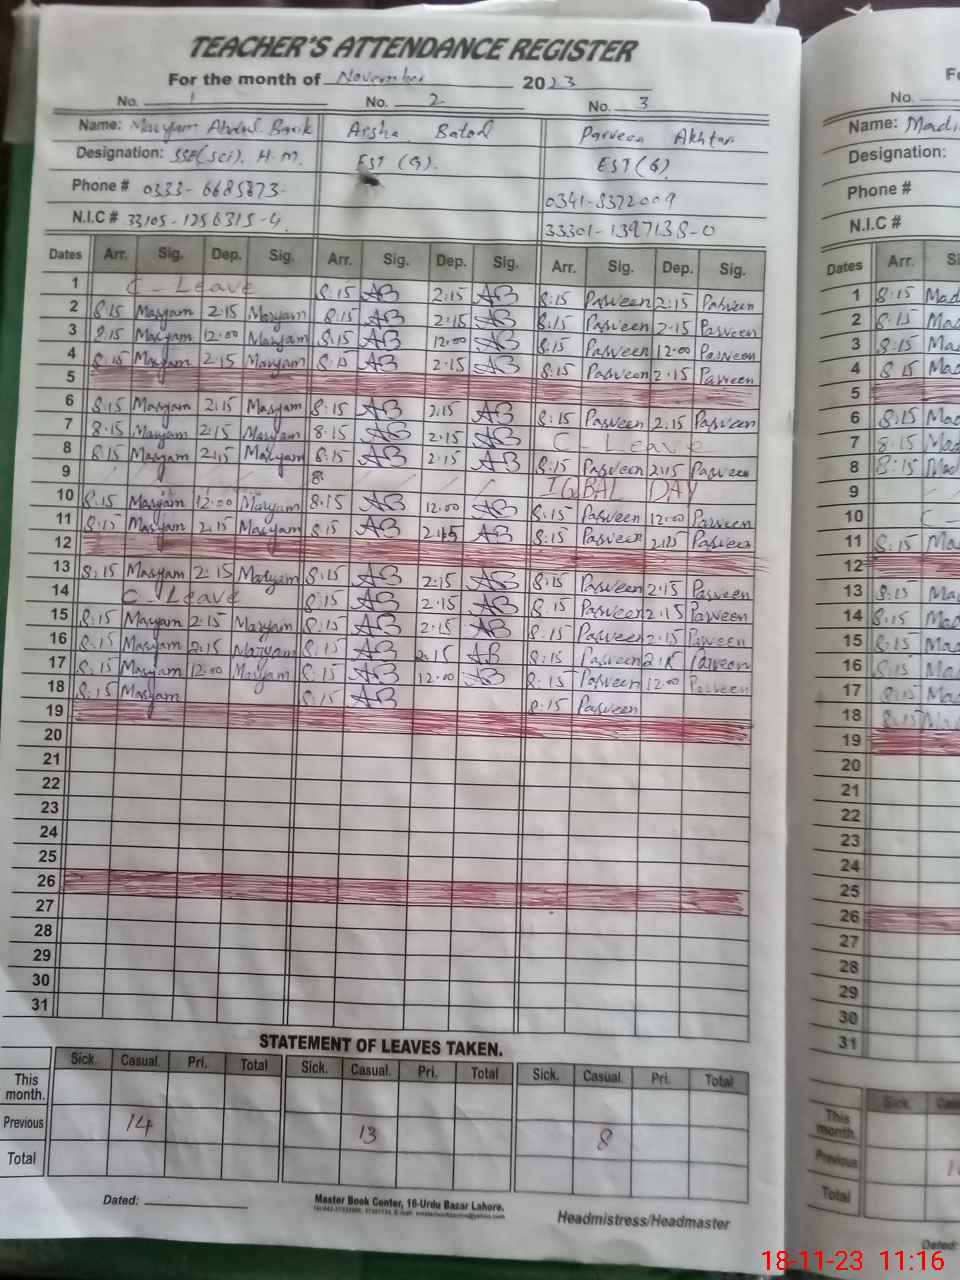 TEACHER'S ATTENDANCE REGISTER
For the month of November 2023
No. 1 No. 2 No. 3
Name: Maryam Abdul Barik Arsha Batool Parveen Akhtar
Designation: SSE(Sci). H.M. EST (G). EST (G)
Phone # 0333-6685873- 0341-8372009
N.I.C # 33105-1256315-4 33301-1397138-0
Dates Arr. Sig. Dep. Sig. Arr. Sig. Dep. Sig. Arr. Sig. Dep. Sig.
1 C - Leave 8:15 AB 2:15 AB 8:15 Parveen 2:15 Parveen
2 8:15 Maryam 2:15 Maryam 8:15 AB 2:15 AB 8:15 Parveen 2:15 Parveen
3 8:15 Maryam 12:00 Maryam 8:15 AB 12:00 AB 8:15 Parveen 12:00 Parveen
4 8:15 Maryam 2:15 Maryam 8:15 AB 2:15 AB 8:15 Parveen 2:15 Parveen
5
6 8:15 Maryam 2:15 Maryam 8:15 AB 2:15 AB 8:15 Parveen 2:15 Parveen
7 8:15 Maryam 2:15 Maryam 8:15 AB 2:15 AB C - Leave
8 8:15 Maryam 2:15 Maryam 8:15 AB 2:15 AB 8:15 Parveen 2:15 Parveen
9 8: IQBAL DAY
10 8:15 Maryam 12:00 Maryam 8:15 AB 12:00 AB 8:15 Parveen 12:00 Parveen
11 8:15 Maryam 2:15 Maryam 8:15 AB 2:15 AB 8:15 Parveen 2:15 Parveen
12
13 8:15 Maryam 2:15 Maryam 8:15 AB 2:15 AB 8:15 Parveen 2:15 Parveen
14 C - Leave 8:15 AB 2:15 AB 8:15 Parveen 2:15 Parveen
15 8:15 Maryam 2:15 Maryam 8:15 AB 2:15 AB 8:15 Parveen 2:15 Parveen
16 8:15 Maryam 2:15 Maryam 8:15 AB 2:15 AB 8:15 Parveen 2:15 Parveen
17 8:15 Maryam 12:00 Maryam 8:15 AB 12:00 AB 8:15 Parveen 12:00 Parveen
18 8:15 Maryam 8:15 AB 8:15 Parveen
19
20
21
22
23
24
25
26
27
28
29
30
31
STATEMENT OF LEAVES TAKEN.
Sick. Casual. Pri. Total Sick. Casual. Pri. Total Sick. Casual. Pri. Total
This month.
Previous 14 13 8
Total
Dated:
Master Book Center, 16-Urdu Bazar Lahore.
Headmistress/Headmaster
No.
Name: Madi
Designation:
Phone #
N.I.C #
Dates Arr.
1 8:15 Mad
2 8:15 Mad
3 8:15 Mad
4 8:15 Mad
5
6 8:15 Mad
7 8:15 Mad
8 8:15 Mad
9
10 C -
11 8:15 Mad
12
13 8:15 Ma
14 8:15 Ma
15 8:15 Ma
16 8:15 Ma
17 8:15 Ma
18 8:15 Ma
19
20
21
22
23
24
25
26
27
28
29
30
31
Sick.
This month
Previous
Total
Dated:
18-11-23 11:16